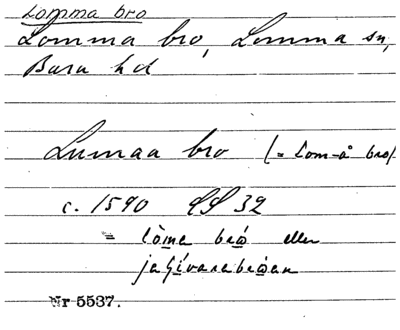 Lomma bro
Lomma bro, Lomma sn,
Bara hd
Lumaa bro (= Lom-å bro)
c. 1590 32
= lòma bró eller
Nr 5537.